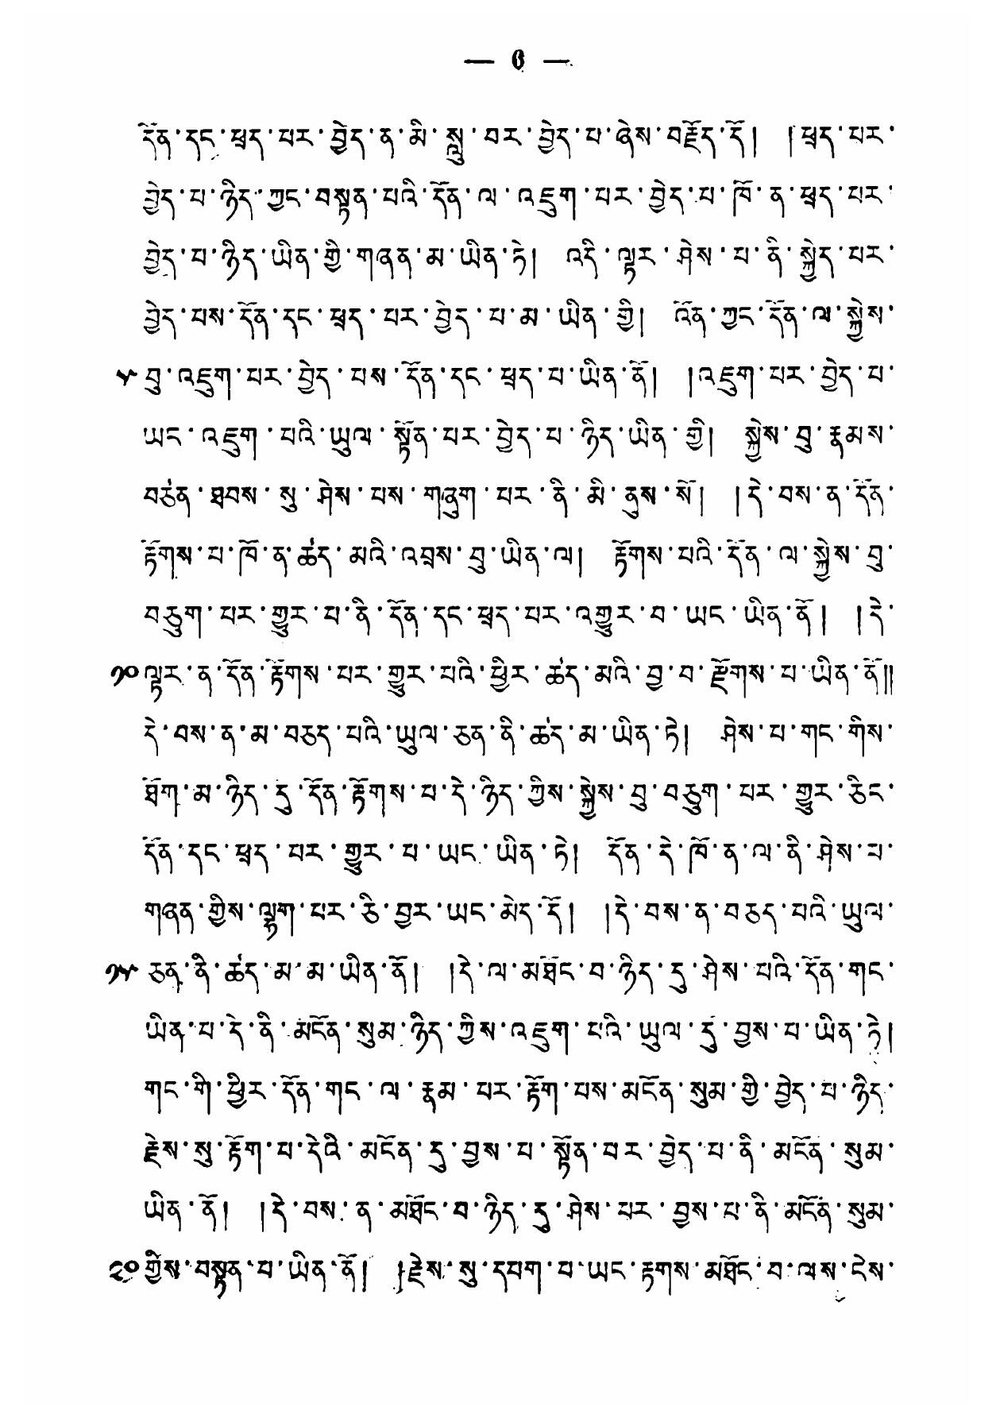 — ༦ —
དོན་དང་ཕྲད་པར་བྱེད་ན་མི་སླུ་བར་བྱེད་པ་ཞེས་བརྗོད་དོ། །ཕྲད་པར་
བྱེད་པ་ཉིད་ཀྱང་བསྟན་པའི་དོན་ལ་འཇུག་པར་བྱེད་པ་ཁོ་ན་ཕྲད་པར་
བྱེད་པ་ཉིད་ཡིན་གྱི་གཞན་མ་ཡིན་ཏེ། འདི་ལྟར་ཤེས་པ་ནི་སྐྱེད་པར་
བྱེད་པས་དོན་དང་ཕྲད་པར་བྱེད་པ་མ་ཡིན་གྱི། འོན་ཀྱང་དོན་ལ་སྐྱེས་
༥ བུ་འཇུག་པར་བྱེད་པས་དོན་དང་ཕྲད་པ་ཡིན་ནོ། །འཇུག་པར་བྱེད་པ་
ཡང་འཇུག་པའི་ཡུལ་སྟོན་པར་བྱེད་པ་ཉིད་ཡིན་གྱི། སྐྱེས་བུ་རྣམས་
བཙན་ཐབས་སུ་ཤེས་པས་གཞུག་པར་ནི་མི་ནུས་སོ། །དེ་བས་ན་དོན་
རྟོགས་པ་ཁོ་ན་ཚད་མའི་འབྲས་བུ་ཡིན་ལ། རྟོགས་པའི་དོན་ལ་སྐྱེས་བུ་
བཅུག་པར་གྱུར་པ་ནི་དོན་དང་ཕྲད་པར་འགྱུར་བ་ཡང་ཡིན་ནོ། །དེ་
༡༠ ལྟར་ན་དོན་རྟོགས་པར་གྱུར་པའི་ཕྱིར་ཚད་མའི་བྱ་བ་རྫོགས་པ་ཡིན་ནོ༎
དེ་བས་ན་མ་བཅད་པའི་ཡུལ་ཅན་ནི་ཚད་མ་ཡིན་ཏེ། ཤེས་པ་གང་གིས་
ཐོག་མ་ཉིད་དུ་དོན་རྟོགས་པ་དེ་ཉིད་ཀྱིས་སྐྱེས་བུ་བཅུག་པར་གྱུར་ཅིང་
དོན་དང་ཕྲད་པར་གྱུར་པ་ཡང་ཡིན་ཏེ། དོན་དེ་ཁོ་ན་ལ་ནི་ཤེས་པ་
གཞན་གྱིས་ལྷག་པར་ཅི་བྱར་ཡང་མེད་དོ། །དེ་བས་ན་བཅད་པའི་ཡུལ་
༡༥ ཅན་ནི་ཚད་མ་མ་ཡིན་ནོ། །དེ་ལ་མཐོང་བ་ཉིད་དུ་ཤེས་པའི་དོན་གང་
ཡིན་པ་དེ་ནི་མངོན་སུམ་ཉིད་ཀྱིས་འཇུག་པའི་ཡུལ་དུ་བྱས་པ་ཡིན་ཏེ།
གང་གི་ཕྱིར་དོན་གང་ལ་རྣམ་པར་རྟོག་པས་མངོན་སུམ་གྱི་བྱེད་པ་ཉིད་
རྗེས་སུ་རྟོག་པ་དེའི་མངོན་དུ་བྱས་པ་སྟོན་བར་བྱེད་པ་ནི་མངོན་སུམ་
ཡིན་ནོ། །དེ་བས་ན་མཐོང་བ་ཉིད་དུ་ཤེས་པར་བྱས་པ་ནི་མངོན་སུམ་
༢༠ གྱིས་བསྟན་པ་ཡིན་ནོ། །རྗེས་སུ་དཔག་པ་ཡང་རྟགས་མཐོང་བ་ལས་ངེས་